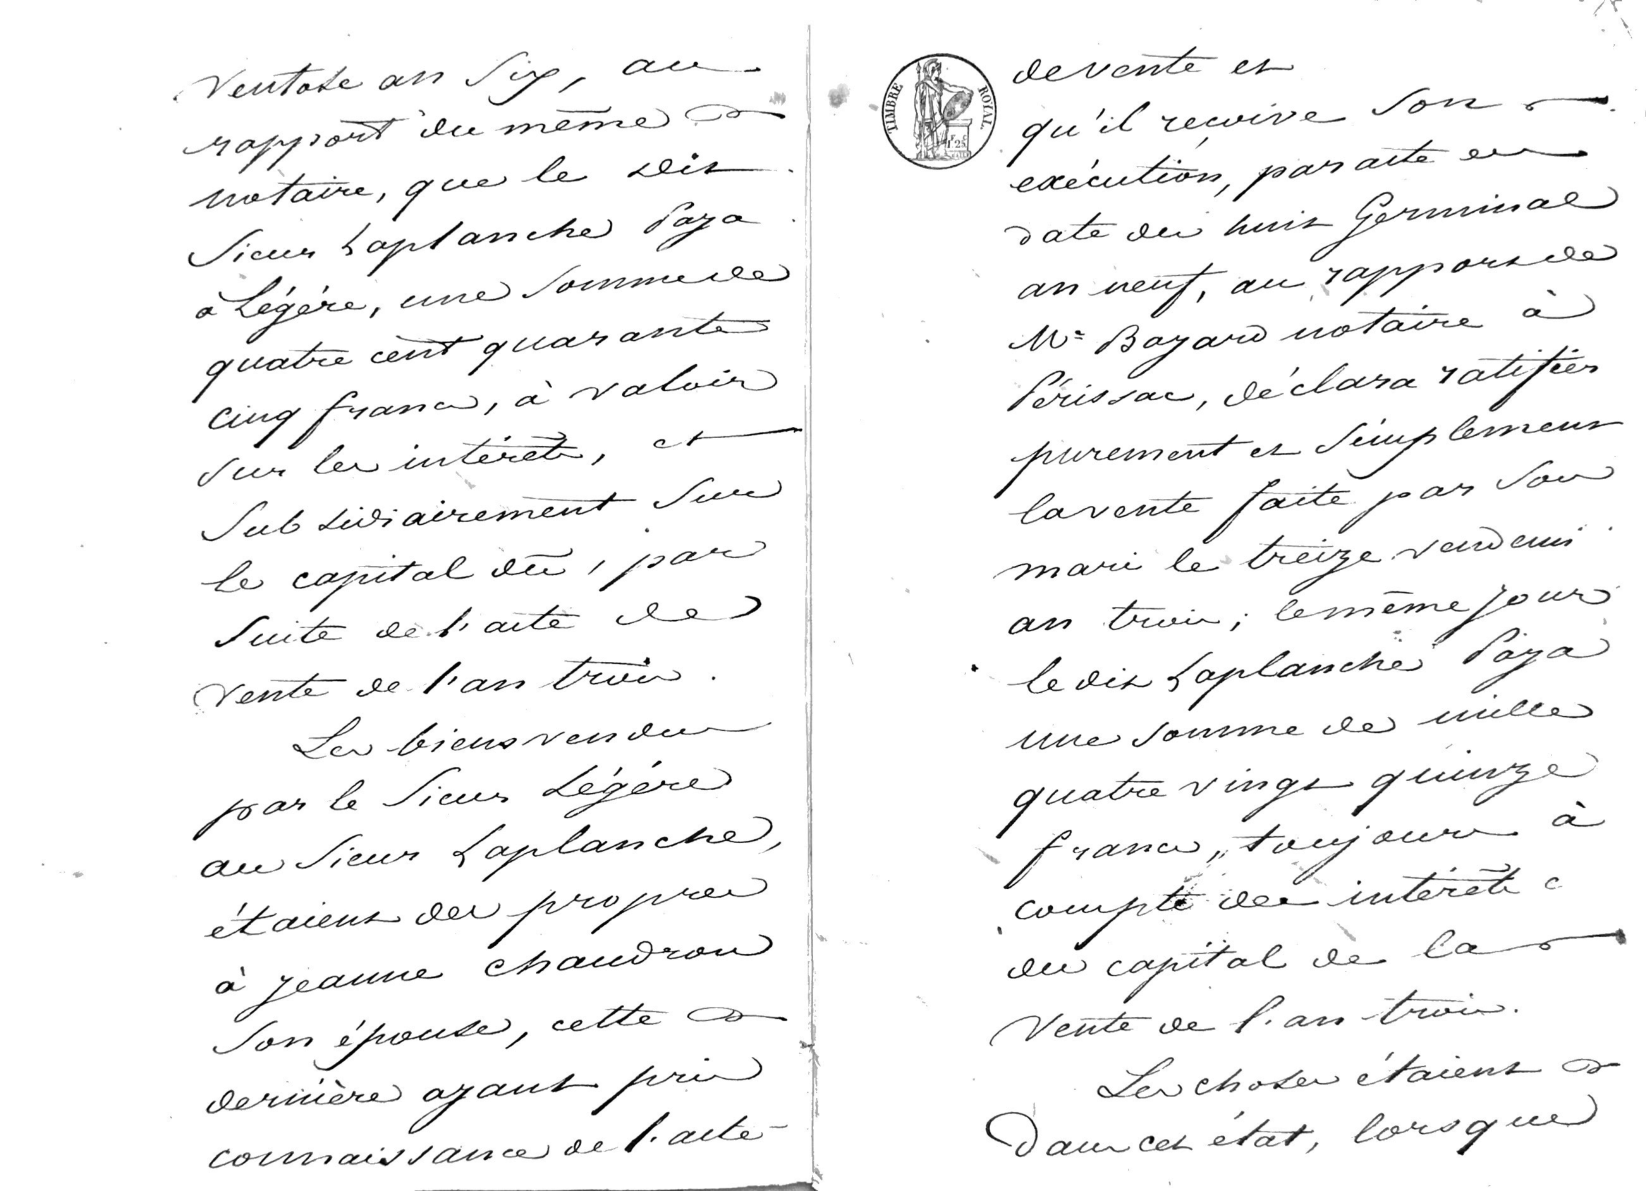 Ventose an Six, au
rapport du même
notaire, que le dit
Sieur Laplanche Paya
à Légére, une somme de
quatre cent quarante
cinq francs, à valoir
sur les intérêts, et
Subsidiairement Sur
le capital dû, par
Suite de l'acte de
vente de l'an trois.
Les biens vendus
par le Sieur Légére
au Sieur Laplanche,
étaient des propres
à Jeanne Chaudron
Son épouse, cette
dernière ayant pris
connaissance de l'acte
TIMBRE ROYAL
de vente et
qu'il reçoive Son
exécution, par acte en
date du huit Germinal
an neuf, au rapport de
Me Bazard notaire à
Périssac, déclara ratifier
purement et Simplement
la vente faite par Son
mari le treize vendemi
an trois; le même Jour
le dit Laplanche Paya
une somme de mille
quatre vingt quinze
francs, toujours à
compte des intérêts
du capital de la
Vente de l'an trois.
Les choses étaient
Dans cet état, lorsque